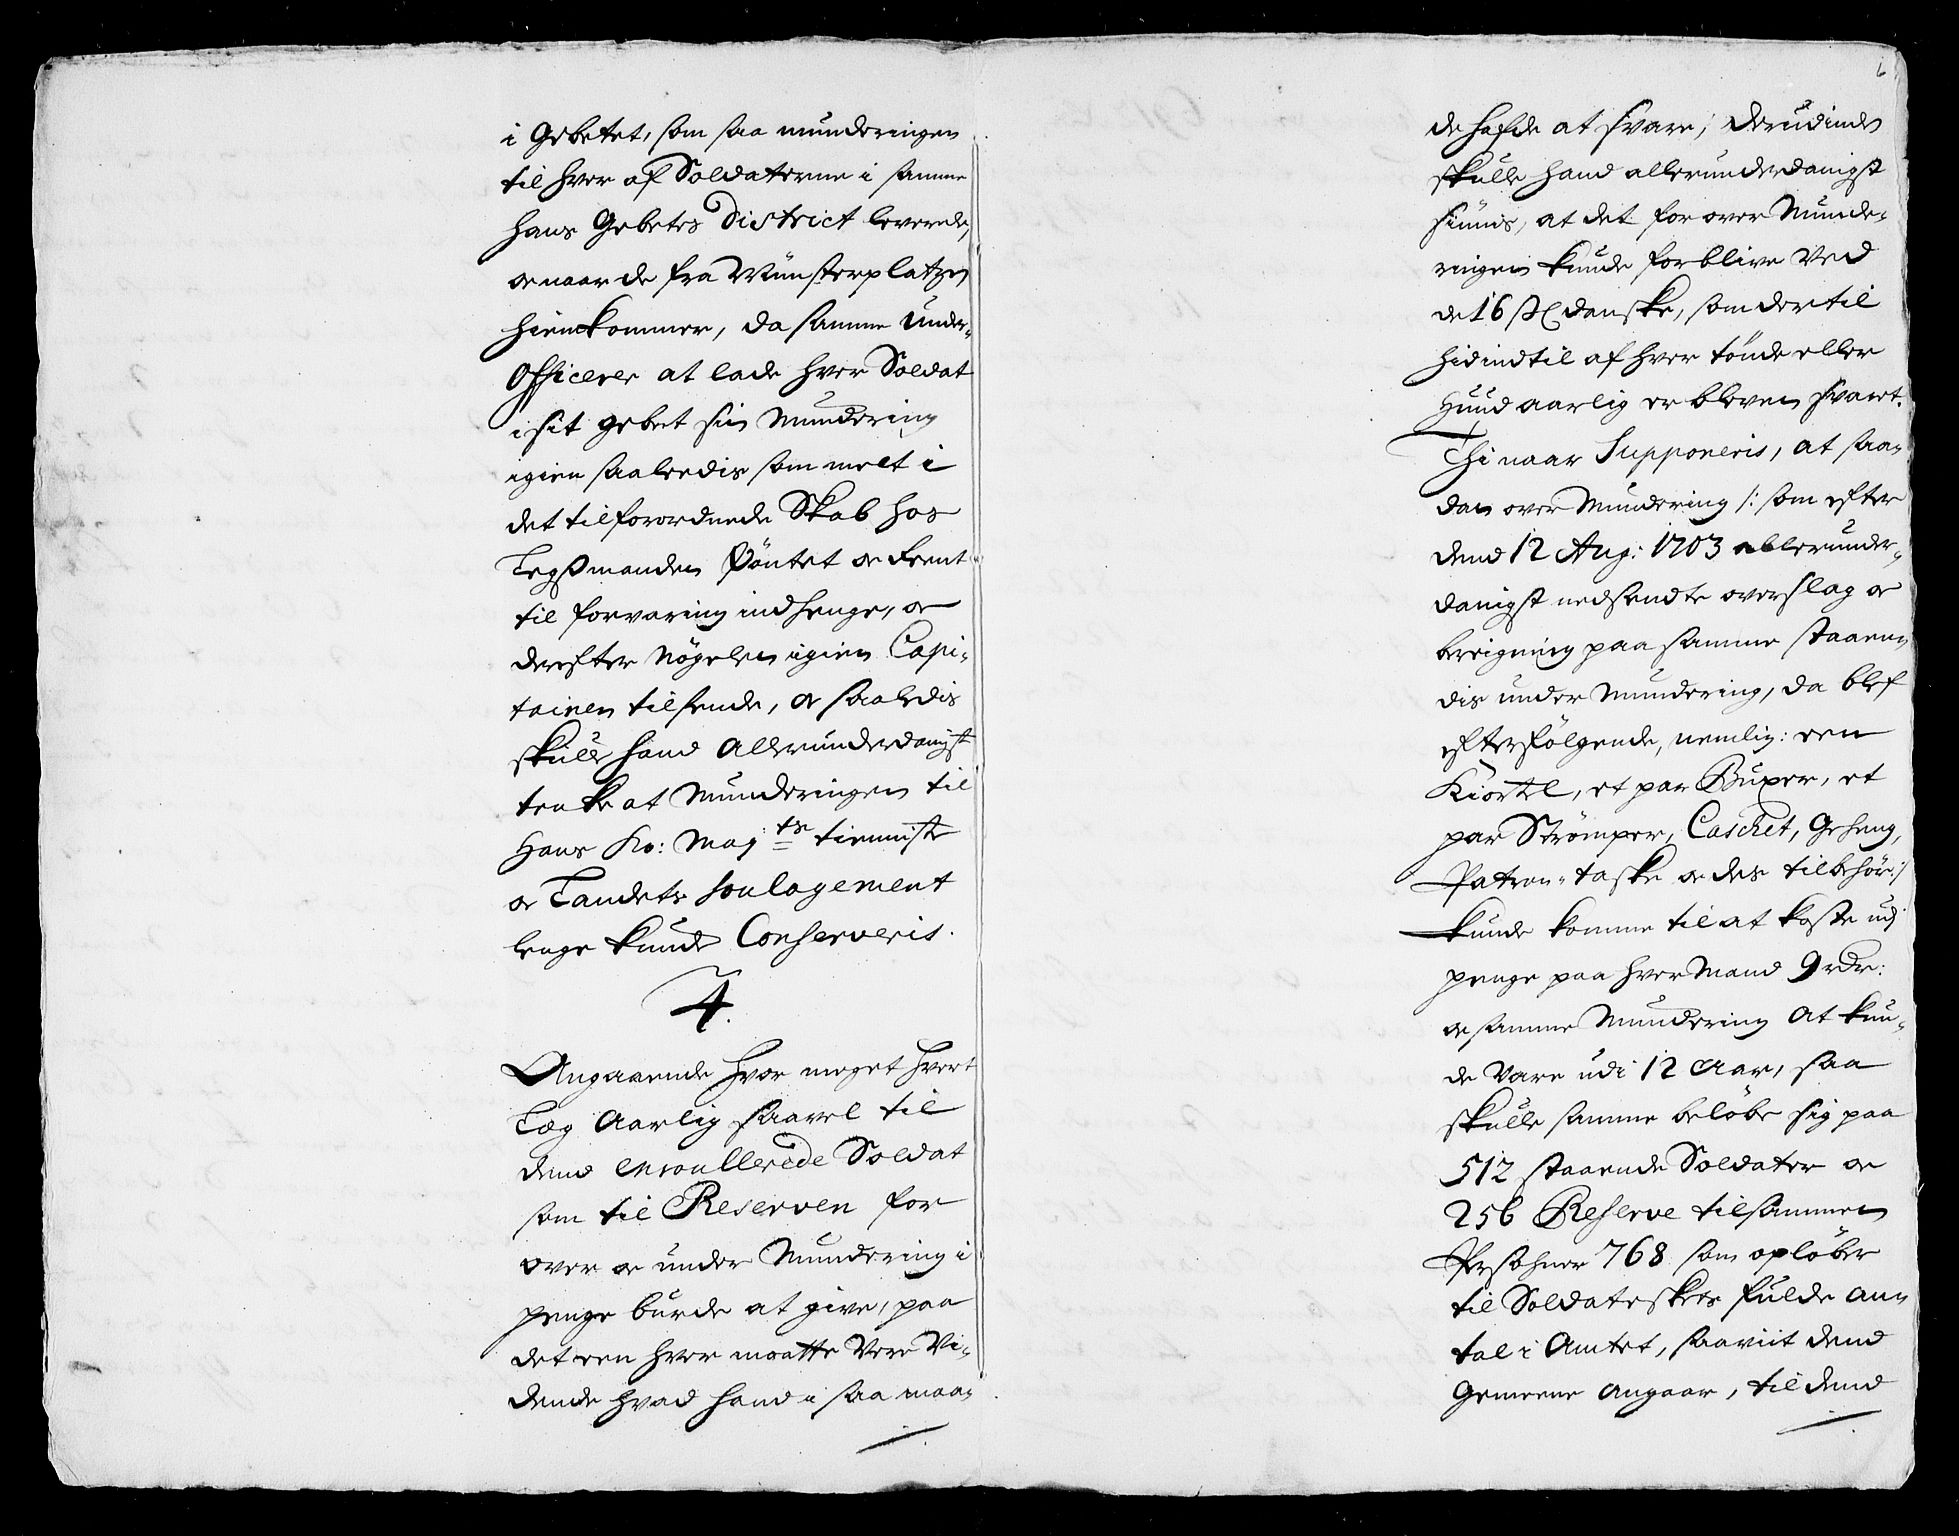 i Gebetet, som saa munderingen
til hver af Soldaterne i samme
hans Gebetes District leverede,
oc naar de fra Münsterplatzen
hiemkommer, da samme Under-
Officerer at lade hver Soldat
i sit gebeet sin Mundering
igien saaleedis som melt i
det tilforordnede Skab hos
Legsmanden Pöntet oc Reent
til forvaring indhenge, oc
derefter Nögelen igien Capi-
tainen tilsende, oc saaledis
skulle hand Allerunderdanigst
tenke at Munderingen til
Hans Ko: Maj:ts tienniste
oc Landets soulagement
lenge kunde Conserveris.
4.
Angaaende hvor meget hvert
Læg Aarlig saavel til
dend enroullerede Soldat
som til Reserven for
over oc under Mundering i
penge burde at give, paa
det een hver maatte Vere Vi-
dende hvad hand i saa maa-
6
de hafde at svare; derudinden
skulle hand allerunderdanigst
siunis, at det for over Munde-
ringen kunde forblive Ved
de 16 sk danske, som dertil
hidindtil af hver tönde eller
Hund aarlig er bleven svaret.
Thi naar Supponeris, at saa-
dan over Mundering /: som efter
dend 12 Aug: 1703 allerunder-
danigst nedsendte overslag oc
bereigning paa samme staaen-
dis under Mundering, da blef
efterfölgende, nemlig: een
Kiortel, et par Buxer, et
par Strømper, Caschet, Geheng,
Patron-taske oc des tilbehör :/
kunde komme til at koste udj
penge paa hver Mand 9 rdr:
oc samme Mundering At kun-
de Vare udi 12 Aar, saa
skulle samme belöbe sig paa
512 staaende Soldater oc
256 Reserve tilsammen
Persohner 768 som opløber
til Soldateskets fulde An-
tal i Amtet, saaviit dend
Gemeene Angaar, til dend